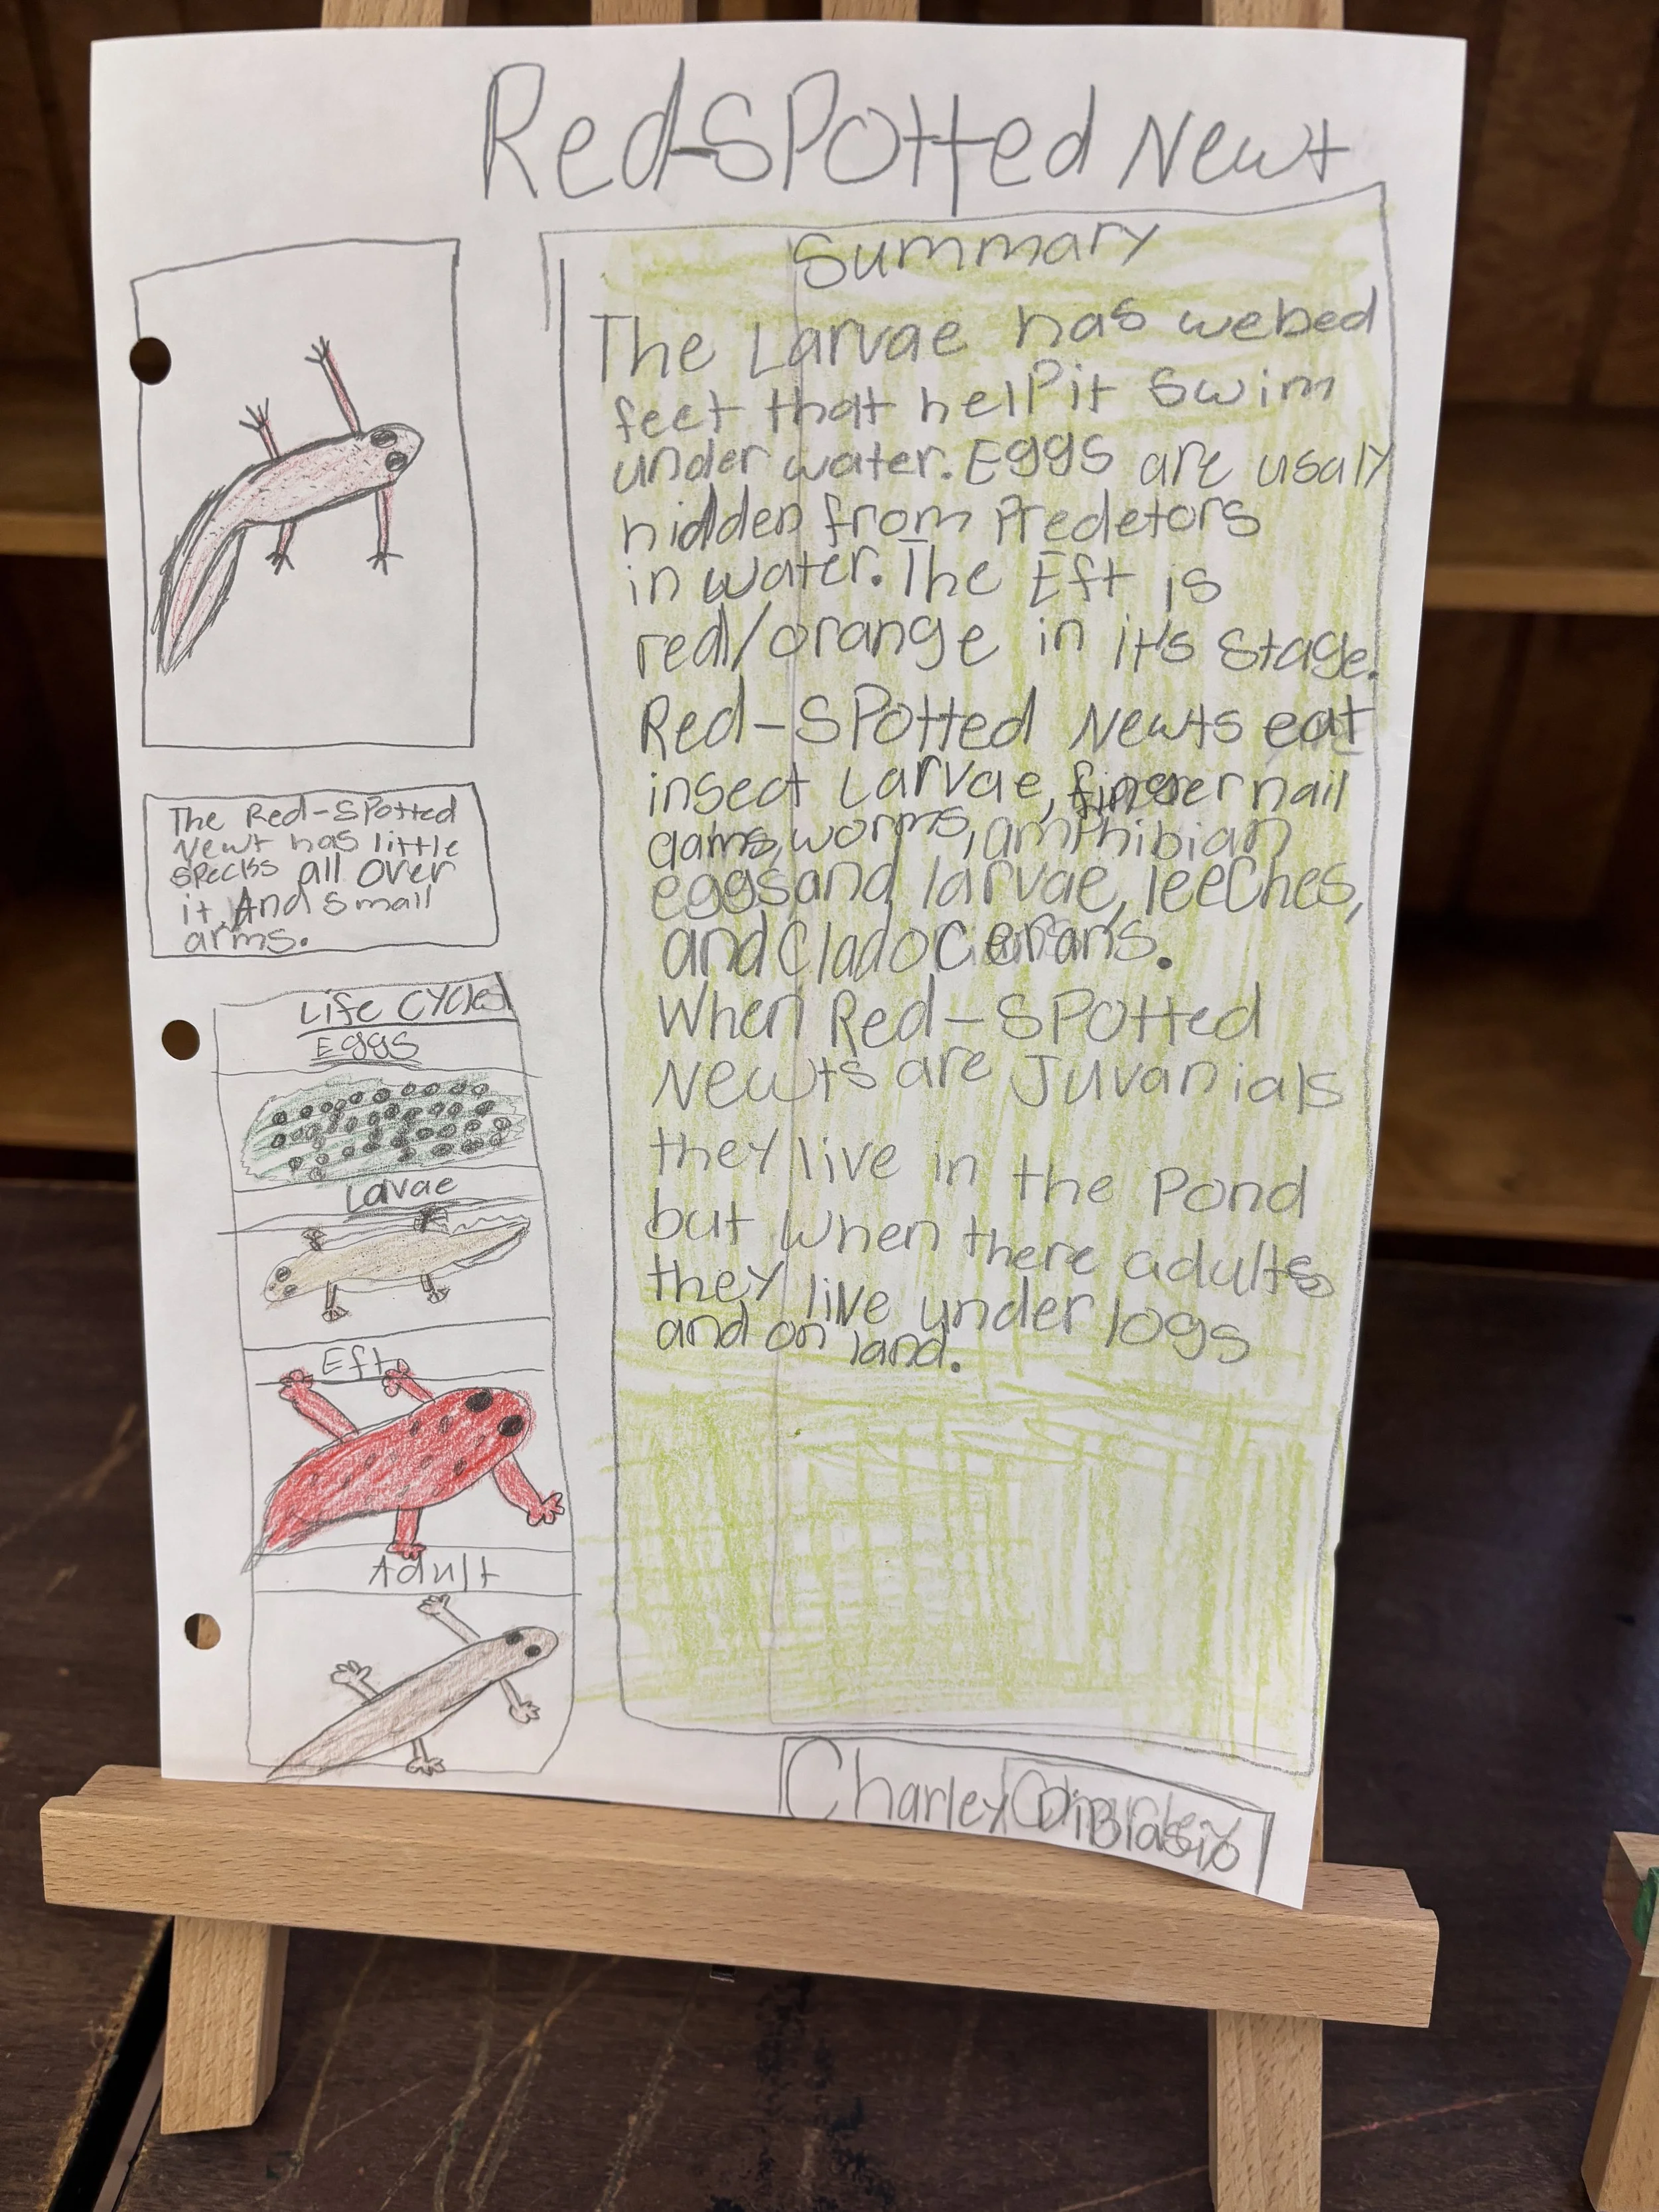 Red-Spotted Newt
Summary
The Larvae has webed
feet that help it swim
under water. Eggs are usaly
hidden from Predetors
in water. The Eft is
red/orange in it's stage.
Red-Spotted Newts eat
insect Larvae, finger nail
clams, worms, amphibian
eggs and larvae, leeches,
and Cladocerans.
When Red-Spotted
Newts are Juvanials
they live in the Pond
but when there adults
they live under logs
and on land.
The Red-Spotted
Newt has little
specks all over
it. And small
arms.
Life Cycle
Eggs
Lavae
Eft
Adult
Charley DiBlasio